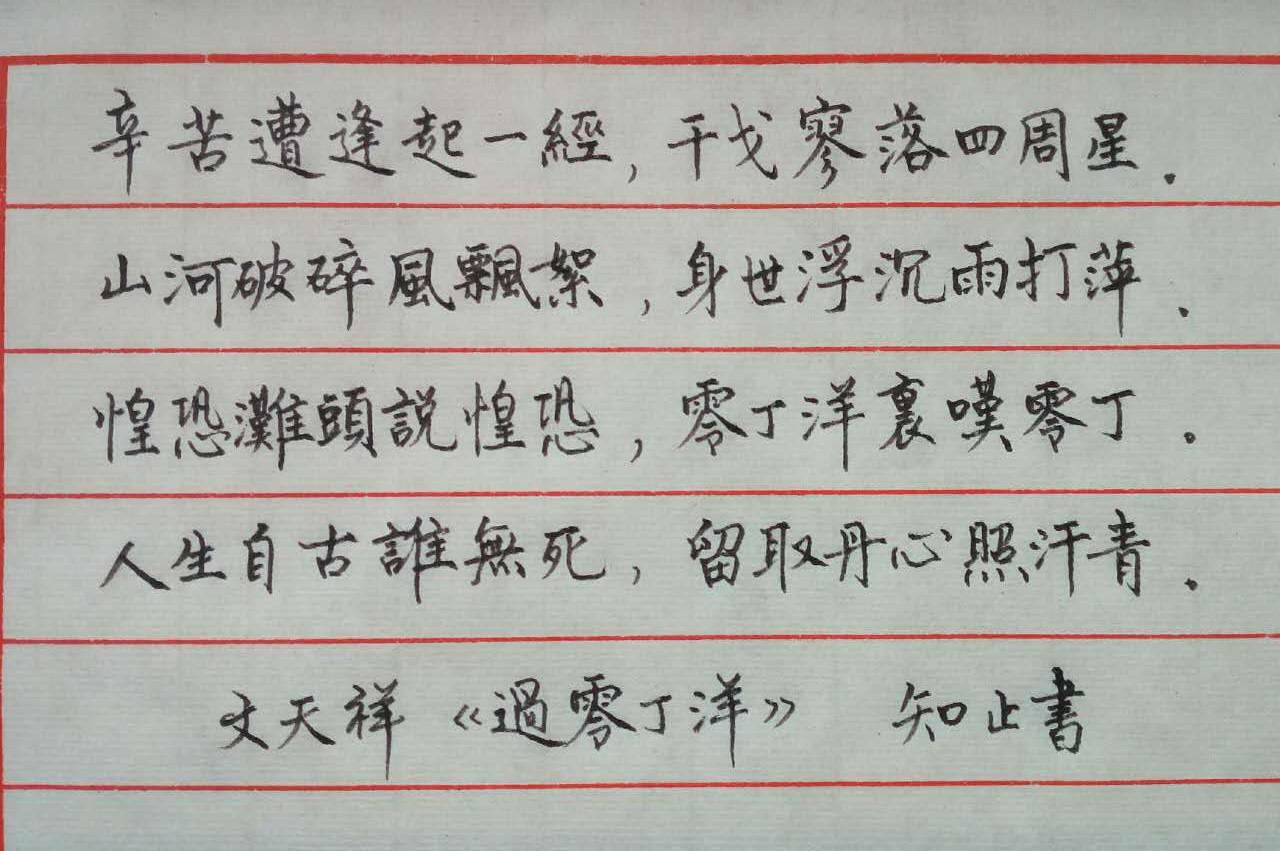 辛苦遭逢起一經，干戈寥落四周星．
山河破碎風飄絮，身世浮沉雨打萍．
惶恐灘頭説惶恐，零丁洋裏嘆零丁．
人生自古誰無死，留取丹心照汗青．
文天祥《過零丁洋》 知止書